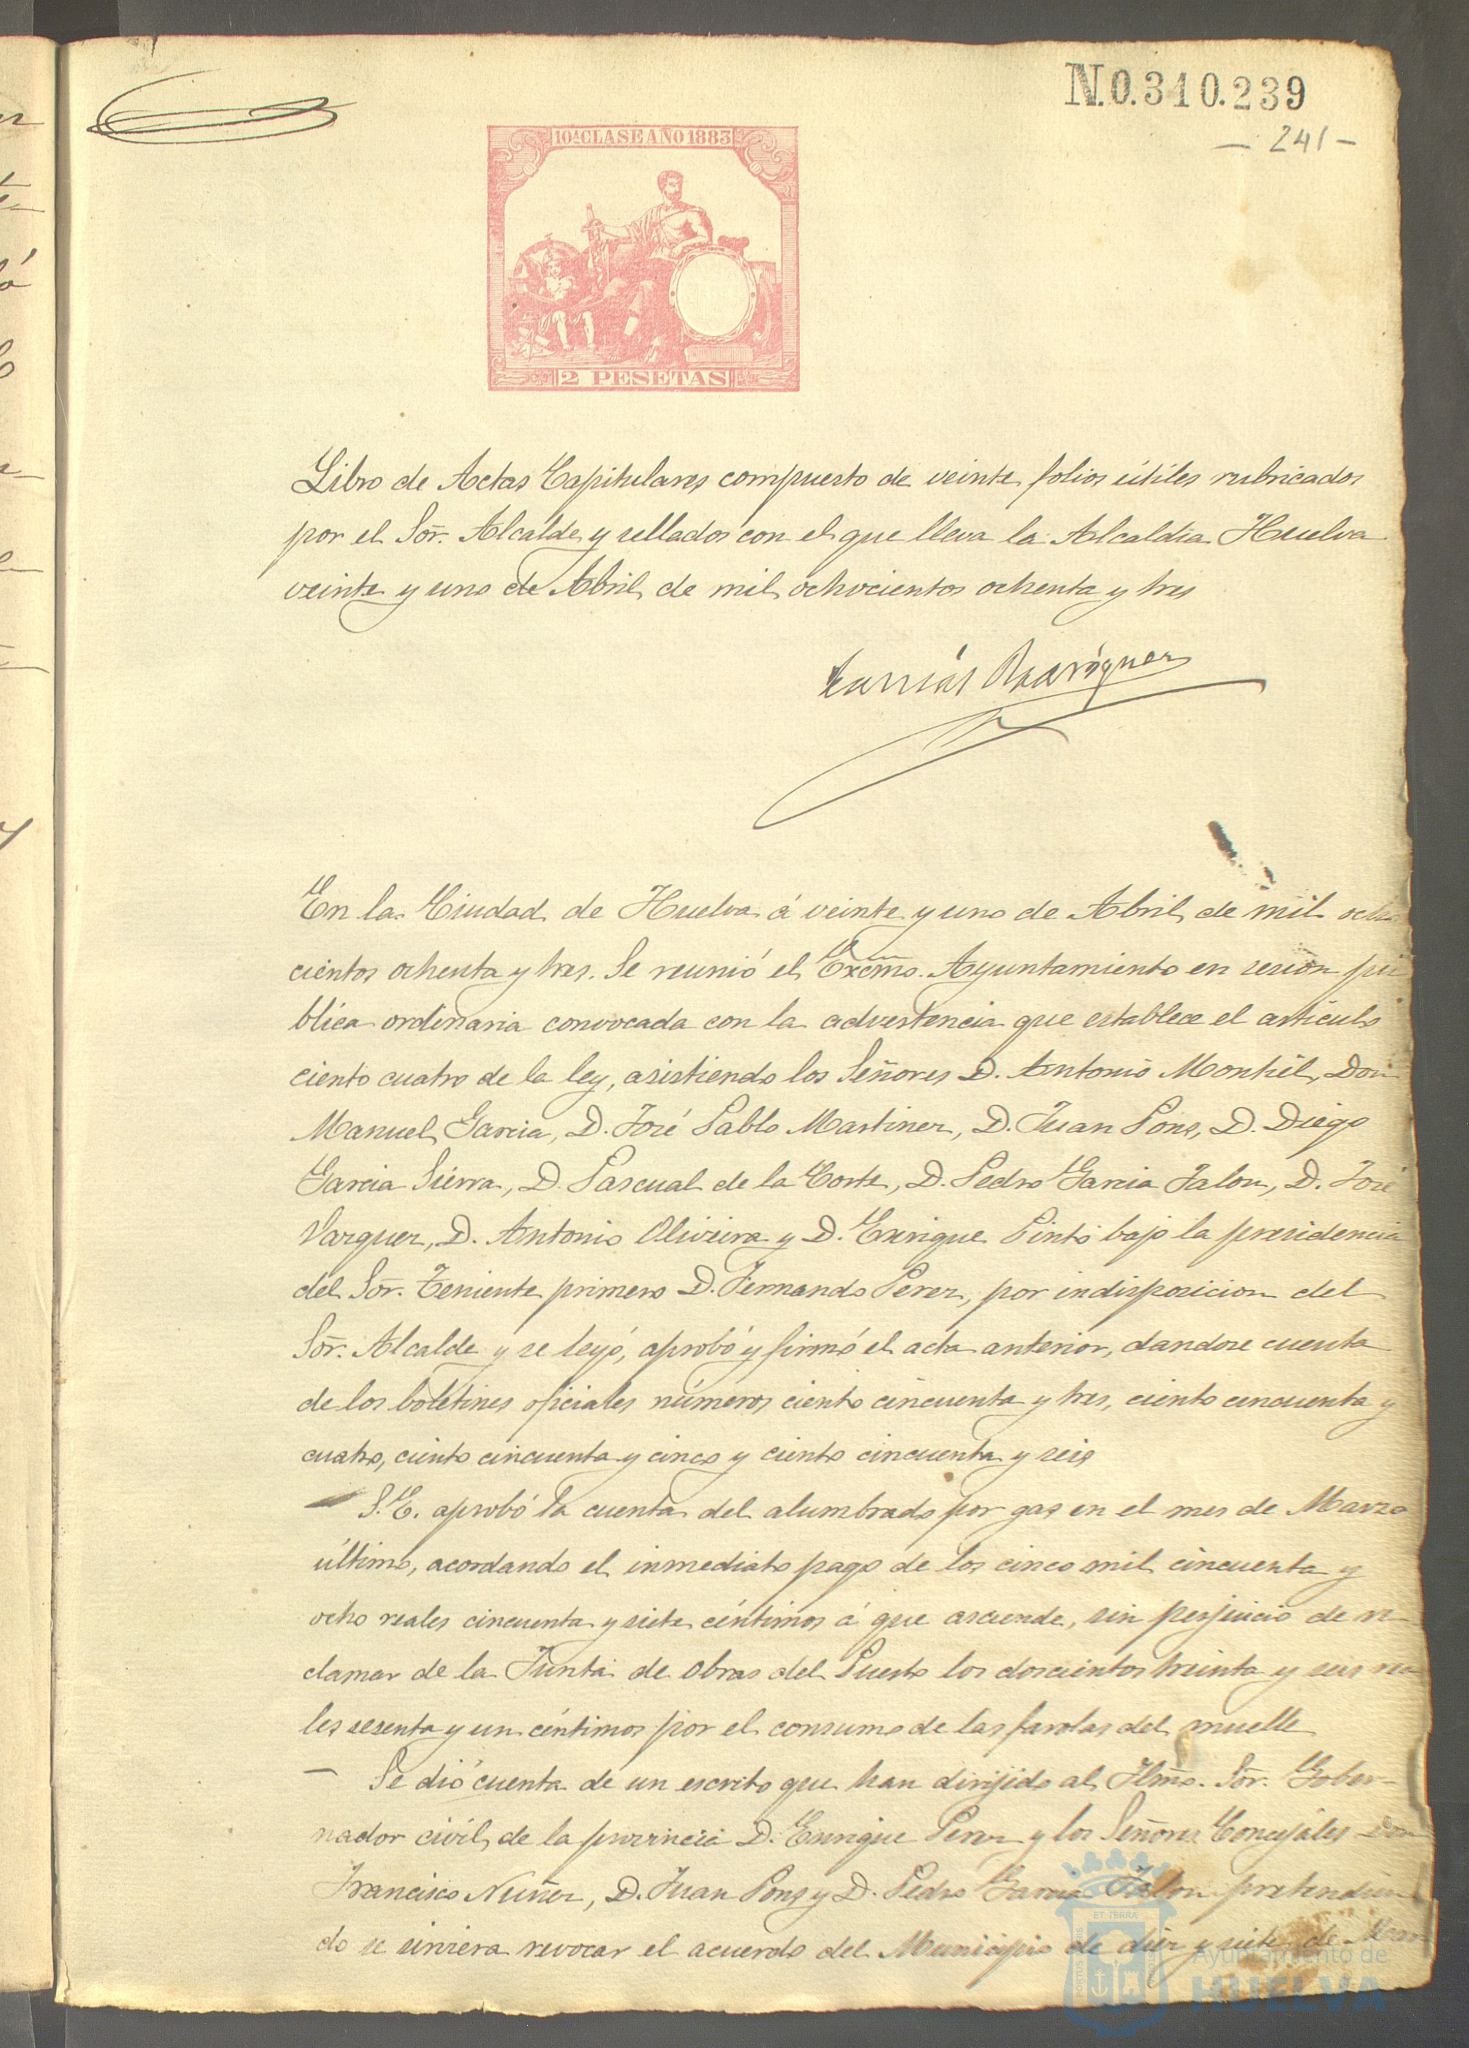 N.0.310.239
- 241 -
10ª CLASE AÑO 1883
2 PESETAS
Libro de Actas Capitulares compuesto de veinte folios útiles rubricados
por el Sor. Alcalde y sellados con el que lleva la Alcaldia Huelva
veinte y uno de Abril de mil ochocientos ochenta y tres
Rodriguez
En la Ciudad de Huelva á veinte y uno de Abril de mil ocho
cientos ochenta y tres. Se reunió el Excmo. Ayuntamiento en sesion pú
blica ordinaria convocada con la advertencia que establece el artículo
ciento cuatro de la ley, asistiendo los Señores D. Antonio Montiel, Don
Manuel Garcia, D. José Pablo Martinez, D. Juan Pons, D. Diego
Garcia Sierra, D. Pascual de la Corte, D. Pedro Garcia Jalon, D. José
Vazquez, D. Antonio Oliveira y D. Enrique Pinto bajo la presidencia
del Sor. Teniente primero D. Fernando Perez, por indisposicion del
Sor. Alcalde y se leyó, aprobó y firmó el acta anterior, dandose cuenta
de los boletines oficiales números ciento cincuenta y tres, ciento cincuenta y
cuatro, ciento cincuenta y cinco y ciento cincuenta y seis
S.E. aprobó la cuenta del alumbrado por gas en el mes de Marzo
último, acordando el inmediato pago de los cinco mil cincuenta y
ocho reales cincuenta y siete céntimos á que asciende, sin perjuicio de re
clamar de la Junta de Obras del Puerto los doscientos treinta y seis rea
les sesenta y un céntimos por el consumo de las farolas del muelle
Se dió cuenta de un escrito que han dirijido al Ilmo. Sor. Gober-
nador civil de la provincia D. Enrique Perez y los Señores Concejales Don
Francisco Nuñez, D. Juan Pons y D. Pedro Garcia Jalon pretendien
do se sirviera revocar el acuerdo del Municipio de diez y siete de Mar
ET TERRÆ
PORTUS MARIS
CUSTODIA
Ayuntamiento de
HUELVA